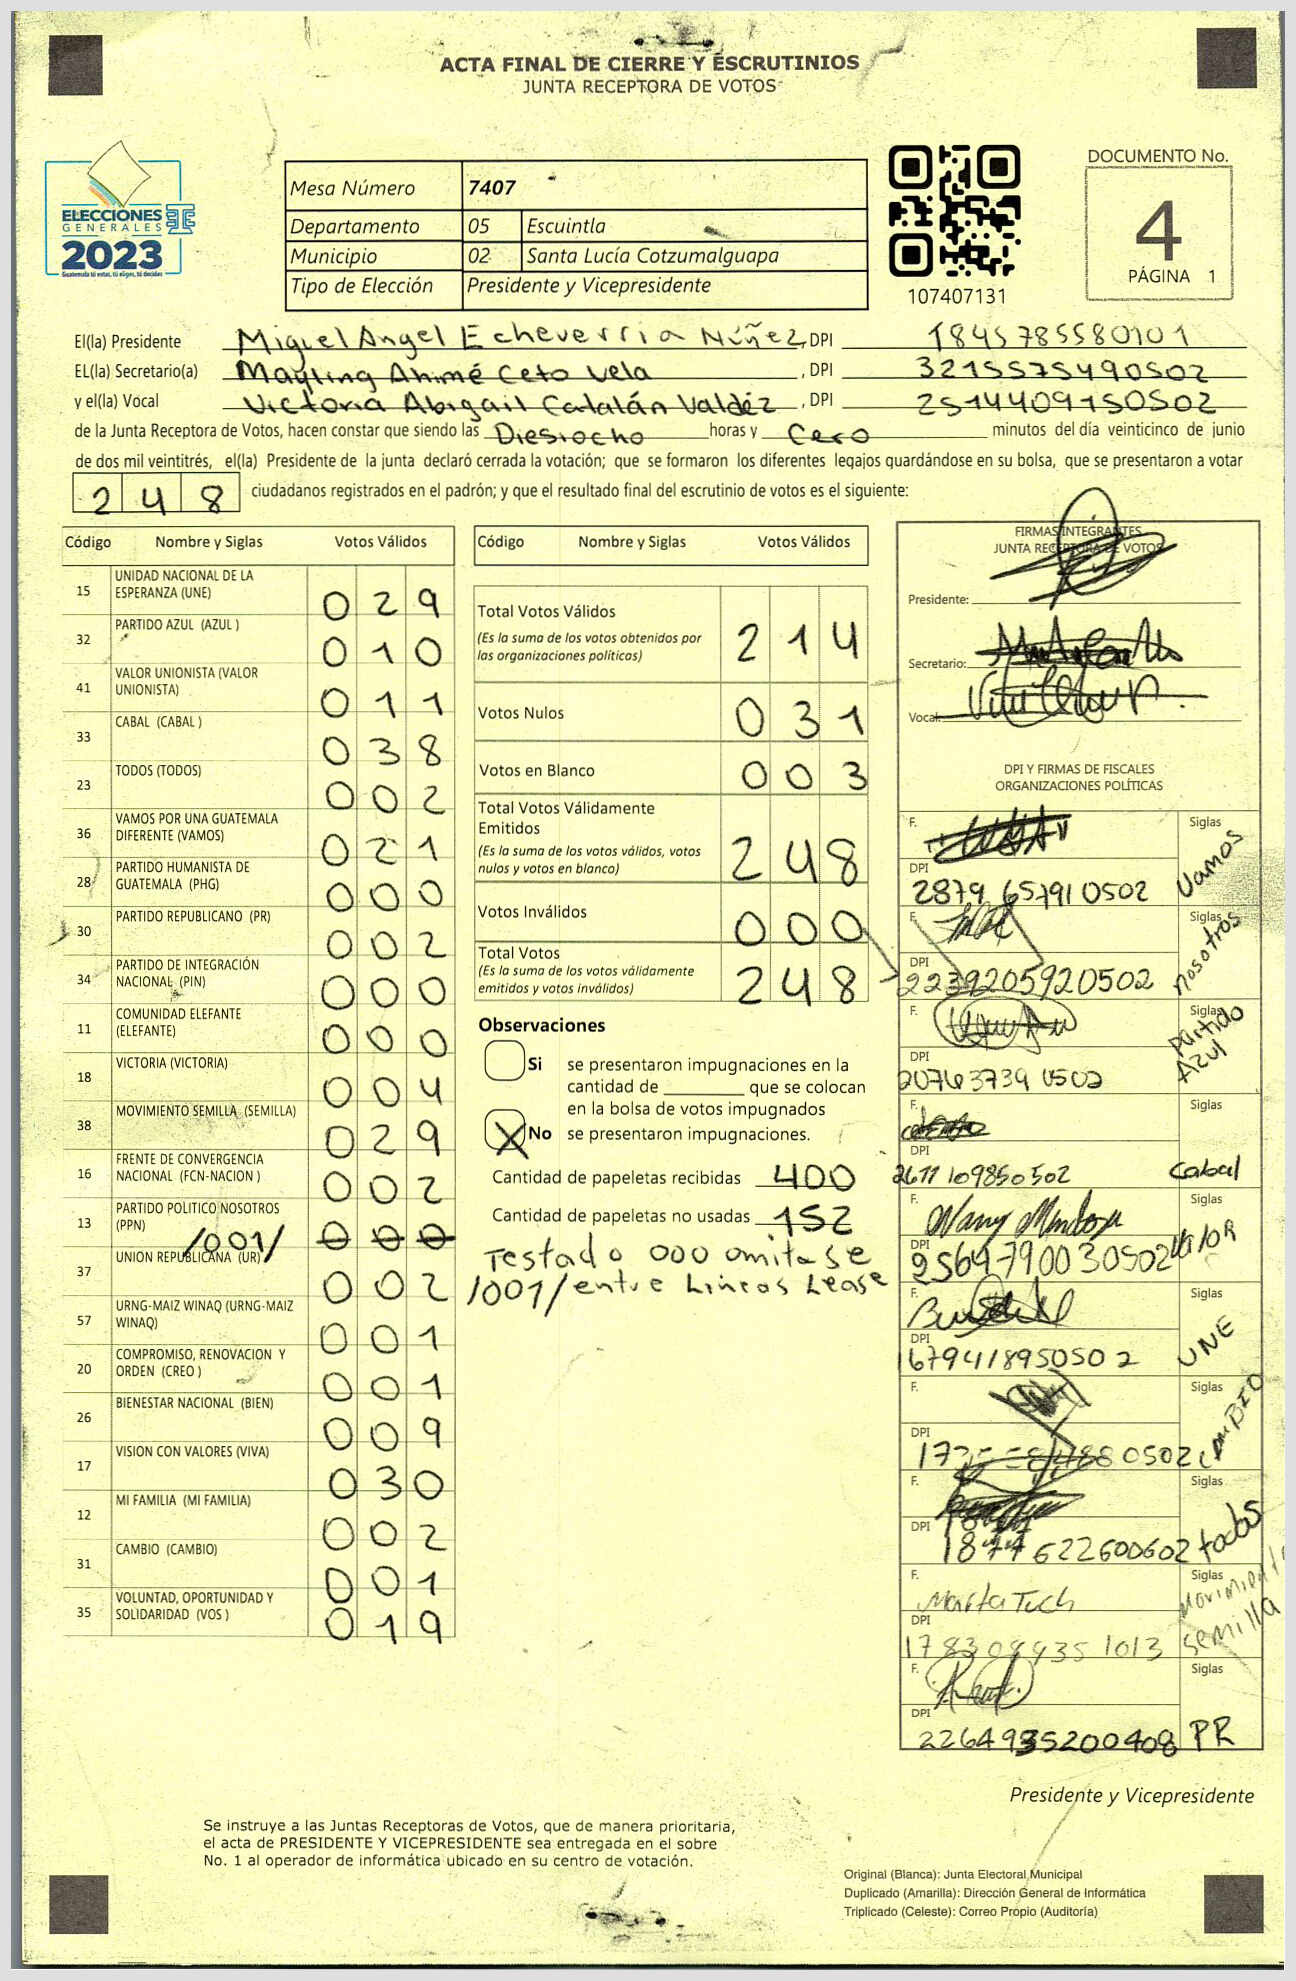 ACTA FINAL DE CIERRE Y ESCRUTINIOS
JUNTA RECEPTORA DE VOTOS
ELECCIONES
GENERALES
2023
Guatemala tú estas, tú eliges, tú decides
Mesa Número 7407
Departamento 05 Escuintla
Municipio 02 Santa Lucía Cotzumalguapa
Tipo de Elección Presidente y Vicepresidente
107407131
DOCUMENTO No.
4
PÁGINA 1
El(la) Presidente Miguel Angel Echeverria Núñez, DPI 1845785580101
EL(la) Secretario(a) Mayling Ahimé Ceto Vela, DPI 3215575490502
y el(la) Vocal Victoria Abigail Catalán Valdéz, DPI 2514409150502
de la Junta Receptora de Votos, hacen constar que siendo las Diesiocho horas y Cero minutos del día veinticinco de junio
de dos mil veintitrés, el(la) Presidente de la junta declaró cerrada la votación; que se formaron los diferentes legajos guardándose en su bolsa, que se presentaron a votar
248 ciudadanos registrados en el padrón; y que el resultado final del escrutinio de votos es el siguiente:
Código Nombre y Siglas Votos Válidos
15 UNIDAD NACIONAL DE LA ESPERANZA (UNE) 029
32 PARTIDO AZUL (AZUL ) 010
41 VALOR UNIONISTA (VALOR UNIONISTA) 011
33 CABAL (CABAL ) 038
23 TODOS (TODOS) 002
36 VAMOS POR UNA GUATEMALA DIFERENTE (VAMOS) 021
28 PARTIDO HUMANISTA DE GUATEMALA (PHG) 000
30 PARTIDO REPUBLICANO (PR) 002
34 PARTIDO DE INTEGRACIÓN NACIONAL (PIN) 000
11 COMUNIDAD ELEFANTE (ELEFANTE) 000
18 VICTORIA (VICTORIA) 004
38 MOVIMIENTO SEMILLA (SEMILLA) 029
16 FRENTE DE CONVERGENCIA NACIONAL (FCN-NACION ) 002
13 PARTIDO POLITICO NOSOTROS (PPN) /001/ 000
37 UNION REPUBLICANA (UR) 002
57 URNG-MAIZ WINAQ (URNG-MAIZ WINAQ) 001
20 COMPROMISO, RENOVACION Y ORDEN (CREO ) 001
26 BIENESTAR NACIONAL (BIEN) 009
17 VISION CON VALORES (VIVA) 030
12 MI FAMILIA (MI FAMILIA) 002
31 CAMBIO (CAMBIO) 001
35 VOLUNTAD, OPORTUNIDAD Y SOLIDARIDAD (VOS ) 019
Código Nombre y Siglas Votos Válidos
Total Votos Válidos 214
(Es la suma de los votos obtenidos por
las organizaciones politicas)
Votos Nulos 031
Votos en Blanco 003
Total Votos Válidamente
Emitidos 248
(Es la suma de los votos válidos, votos
nulos y votos en blanco)
Votos Inválidos 000
Total Votos 248
(Es la suma de los votos válidamente
emitidos y votos inválidos)
Observaciones
Si se presentaron impugnaciones en la
cantidad de ________ que se colocan
en la bolsa de votos impugnados
X No se presentaron impugnaciones.
Cantidad de papeletas recibidas 400
Cantidad de papeletas no usadas 152
Testado 000 omitase
/001/ entre Lineas Lease
FIRMAS INTEGRANTES
JUNTA RECEPTORA DE VOTOS
Presidente:
Secretario:
Vocal:
DPI Y FIRMAS DE FISCALES
ORGANIZACIONES POLÍTICAS
F. Siglas Vamos
DPI 2879 657910502
F. Siglas nosotros
DPI 2239205920502
F. Siglas Partido Azul
DPI 207637390502
F. Siglas Cabal
DPI 2677109850502
F. Wany Mendoza Siglas VALOR
DPI 2564790030502
F. Siglas UNE
DPI 1679418950502
F. Siglas CAMBIO
DPI
F. Siglas todos
DPI 1877622600602
F. Marta Tuch Siglas Movimiento semilla
DPI 1783084351013
F. Siglas PR
DPI 2264935200408
Presidente y Vicepresidente
Se instruye a las Juntas Receptoras de Votos, que de manera prioritaria,
el acta de PRESIDENTE Y VICEPRESIDENTE sea entregada en el sobre
No. 1 al operador de informática ubicado en su centro de votación.
Original (Blanca): Junta Electoral Municipal
Duplicado (Amarilla): Dirección General de Informática
Triplicado (Celeste): Correo Propio (Auditoría)